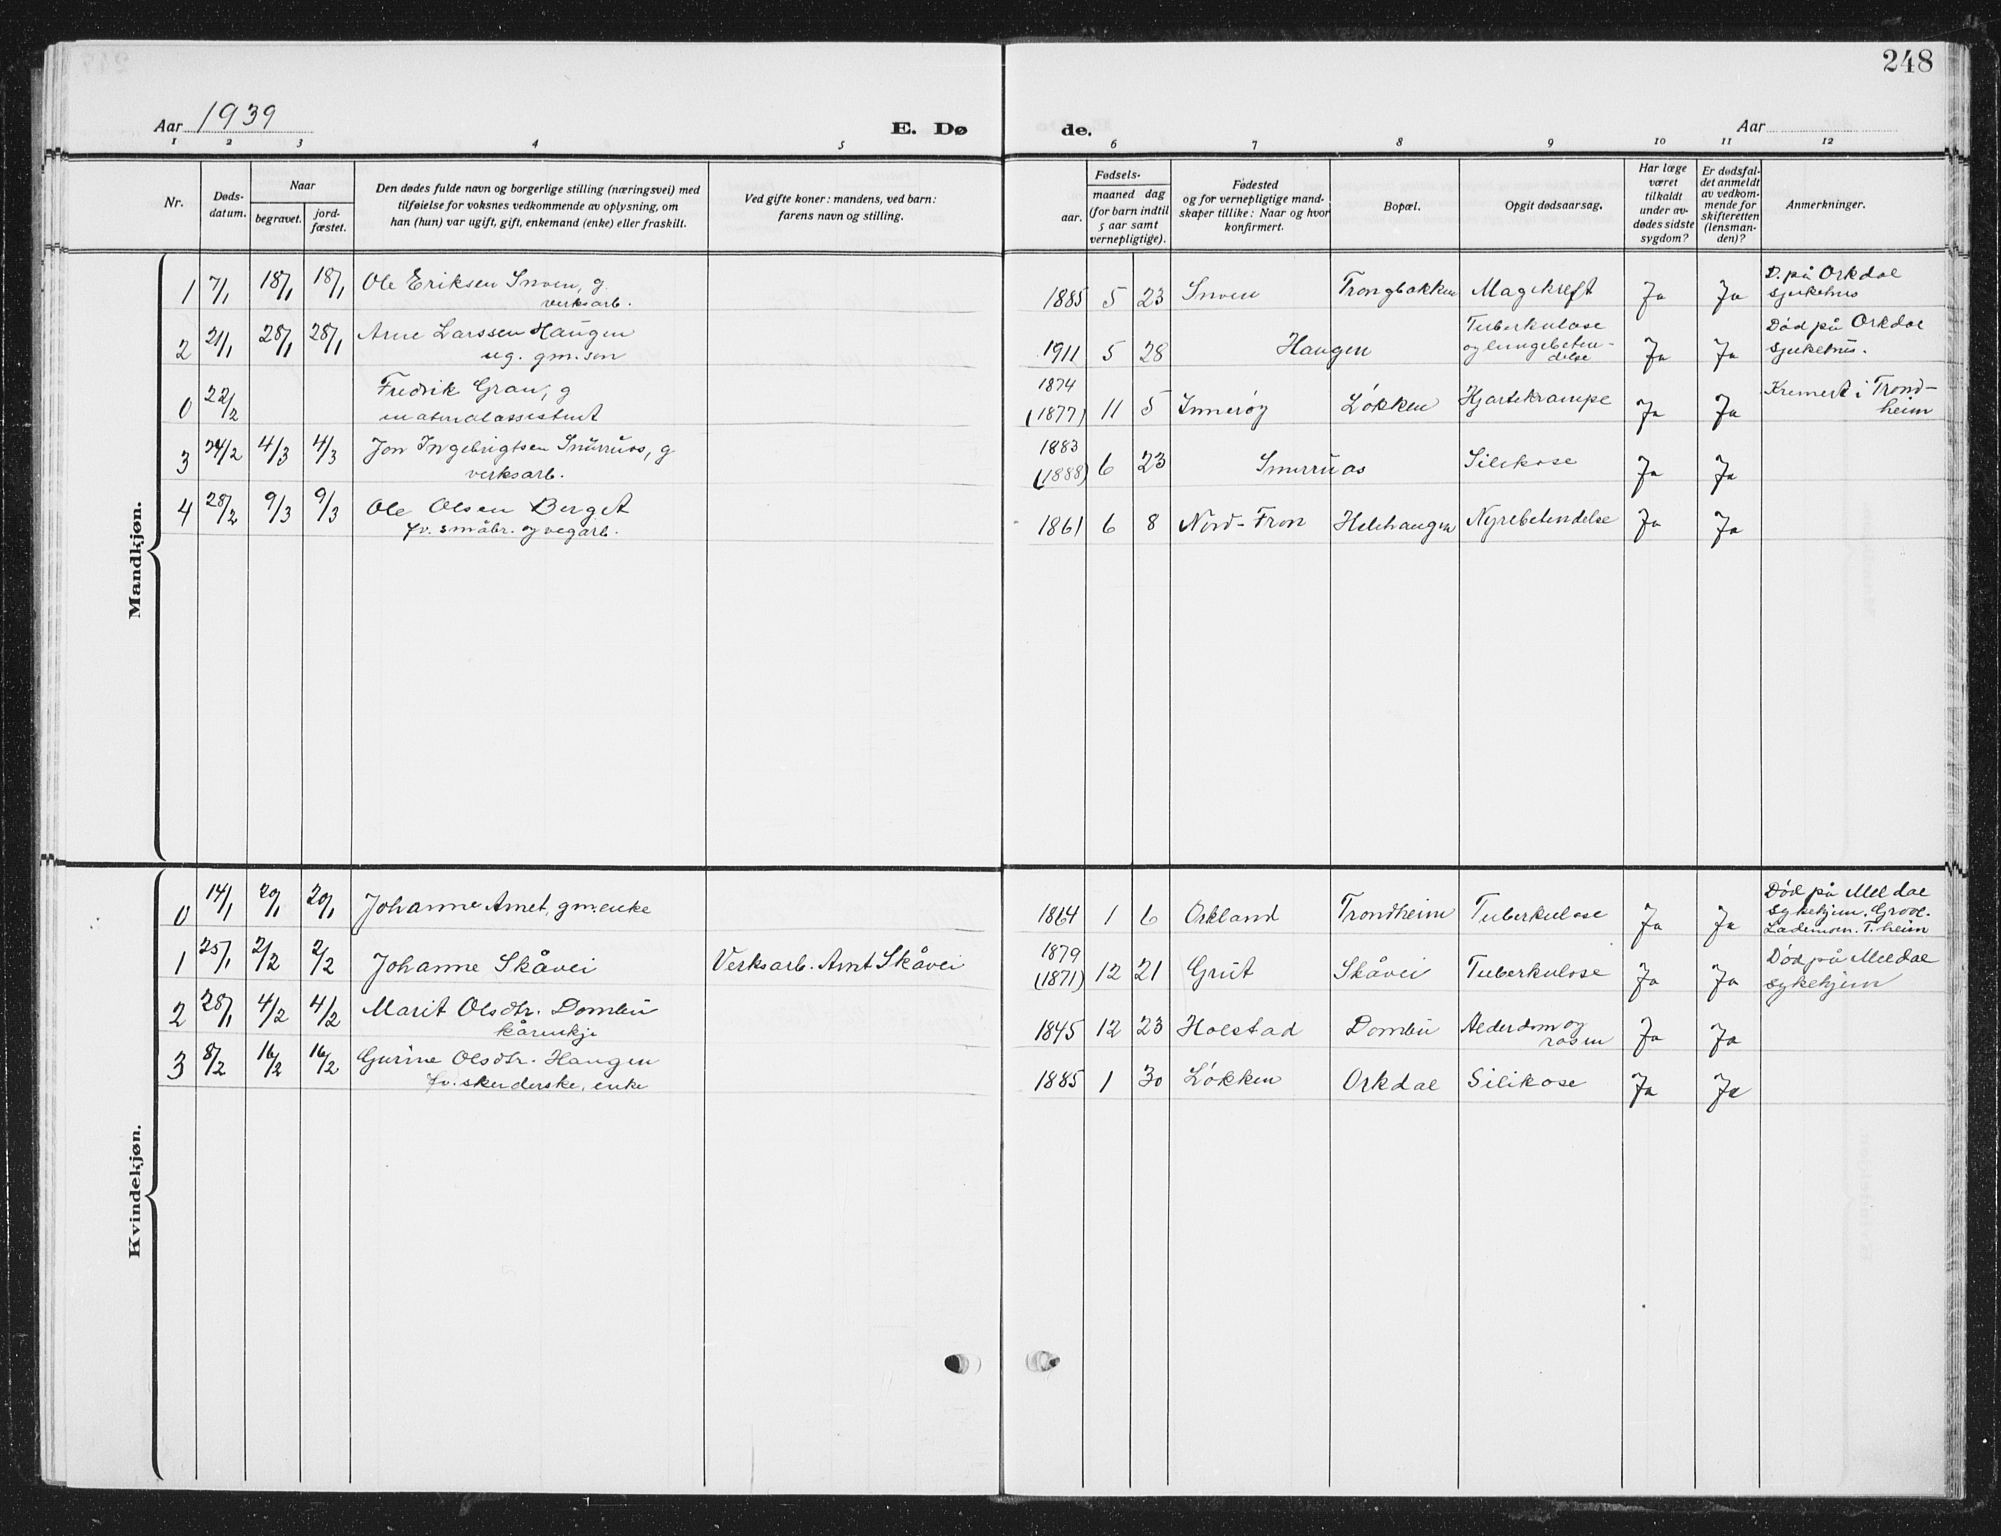 248
Aar 1939
E. Dø
de.
Aar
1 2 3 4 5 6 7 8 9 10 11 12
Nr.
Døds-
datum.
Naar
begravet.
jord-
fæstet.
Den dødes fulde navn og borgerlige stilling (næringsvei) med
tilføielse for voksnes vedkommende av oplysning, om
han (hun) var ugift, gift, enkemand (enke) eller fraskilt.
Ved gifte koner: mandens, ved barn:
farens navn og stilling.
Fødsels-
aar.
maaned dag
(for barn indtil
5 aar samt
vernepligtige).
Fødested
og for vernepligtige mand-
skaper tillike: Naar og hvor
konfirmert.
Bopæl.
Opgit dødsaarsag.
Har læge
været
tilkaldt
under av-
dødes sidste
sygdom?
Er dødsfal-
det anmeldt
av vedkom-
mende for
skifteretten
(lensman-
den)?
Anmerkninger.
Mandkjøn.
1 7/1 18/1 18/1 Ole Eriksen Snoen, g.
verksarb.
1885 5 23 Snoen Trongbakken Magekreft Ja Ja
D. på Orkdal
sjukehus
2 21/1 28/1 28/1 Arne Larssen Haugen
ug. gm. søn
1911 5 28 Haugen
Tuberkulose
og lungebeten-
delse
Ja Ja
Død på Orkdal
Sjukehus.
0 22/2 Fredrik Gran, g
materialassistent
1874
(1877) 11 5 Inderøy Løkken Hjartekrampe Ja Ja
Kremert i Trond-
heim
3 24/2 4/3 4/3 Jon Ingebrigtsen Snurruås, g
verksarb.
1883
(1888) 6 23 Snurruås Silikose Ja Ja
4 28/2 9/3 9/3 Ole Olsen Berget
fv. småbr. og vegarb.
1861 6 8 Nord-Fron Helehaugen Nyrebetendelse Ja Ja
Kvindekjøn.
0 14/1 20/1 20/1 Johanne Arnet, gm. enke
1864 1 6 Orkland Trondheim Tuberkulose Ja Ja
Død på Meldal
sykehjem. Gravl.
Lademoen. T.heim
1 25/1 2/2 2/2 Johanne Skåvei Verksarb. Arnt Skåvei
1879
(1871) 12 21 Grut Skåvei Tuberkulose Ja Ja
Død på Meldal
sykehjem
2 28/1 4/2 4/2 Marit Olsdtr. Dombu
kårenkje
1845 12 23 Holstad Dombu Alderdom og
rosen
Ja Ja
3 8/2 16/2 16/2 Gurine Olsdtr. Haugen
fv. skeiderske, enke
1885 1 30 Løkken Orkdal Silikose Ja Ja